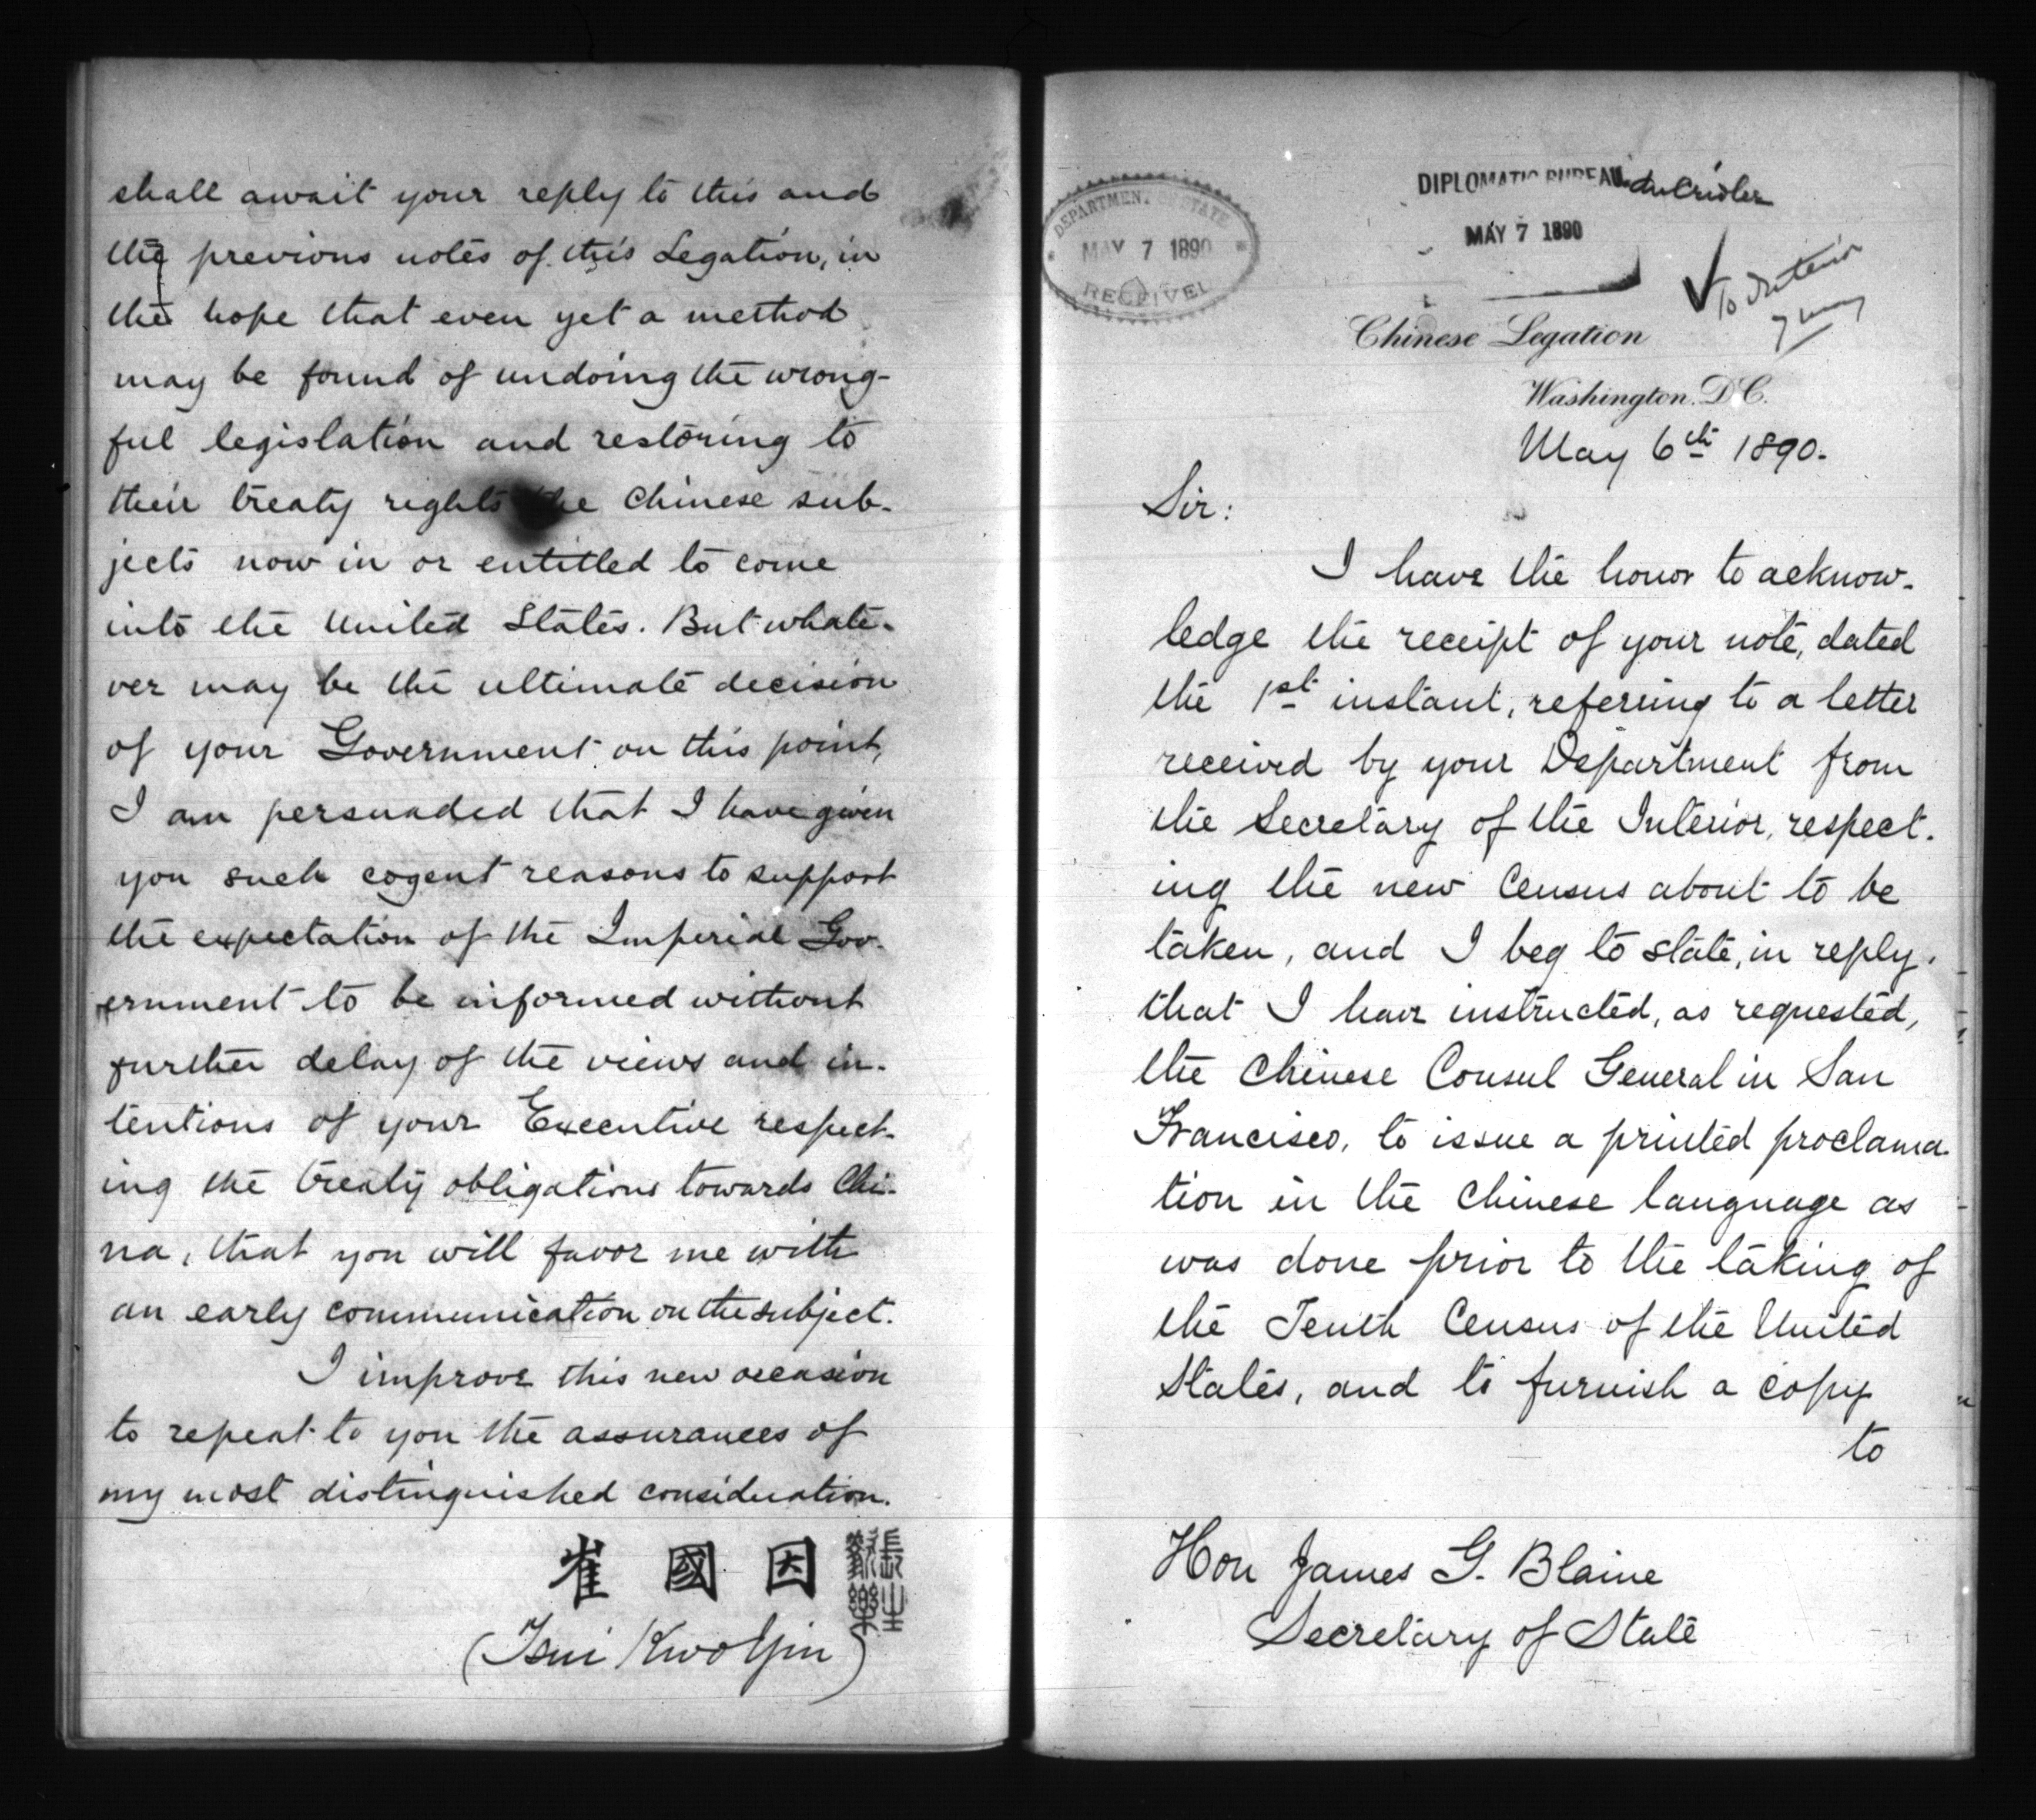 shall await your reply to this and
the previous notes of this Legation, in
the hope that even yet a method
may be found of undoing the wrong-
ful legislation and restoring to
their treaty rights the Chinese sub-
jects now in or entitled to come
into the United States. But whate-
ver may be the ultimate decision
of your Government on this point,
I am persuaded that I have given
you such cogent reasons to support
the expectation of the Imperial Gov-
ernment to be informed without
further delay of the views and in-
tentions of your Executive respect-
ing the treaty obligations towards Chi-
na, that you will favor me with
an early communication on the subject.
I improve this new occasion
to repeat to you the assurances of
my most distinguished consideration.
崔 國 因
(Tsui Kwo Yin)
DEPARTMENT OF STATE
MAY 7 1890
RECEIVED
DIPLOMATIC BUREAU
MAY 7 1890
To Interior
7 May
Chinese Legation
Washington. D.C.
May 6th 1890.
Sir:
I have the honor to acknow-
ledge the receipt of your note, dated
the 1st instant, referring to a letter
received by your Department from
the Secretary of the Interior, respect-
ing the new Census about to be
taken, and I beg to state, in reply,
that I have instructed, as requested,
the Chinese Consul General in San
Francisco, to issue a printed proclama-
tion in the Chinese language as
was done prior to the taking of
the Tenth Census of the United
States, and to furnish a copy
to
Hon James G. Blaine
Secretary of State